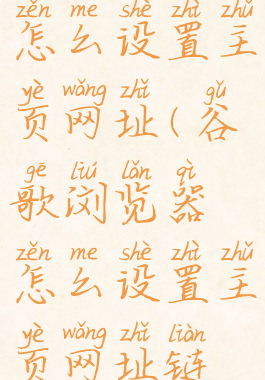 zěn me shè zhì zhǔ
怎么设置主
yè wǎng zhǐ gǔ
页网址(谷
gē liú lǎn qì
歌浏览器
zěn me shè zhì zhǔ
怎么设置主
yè wǎng zhǐ liàn
页网址链